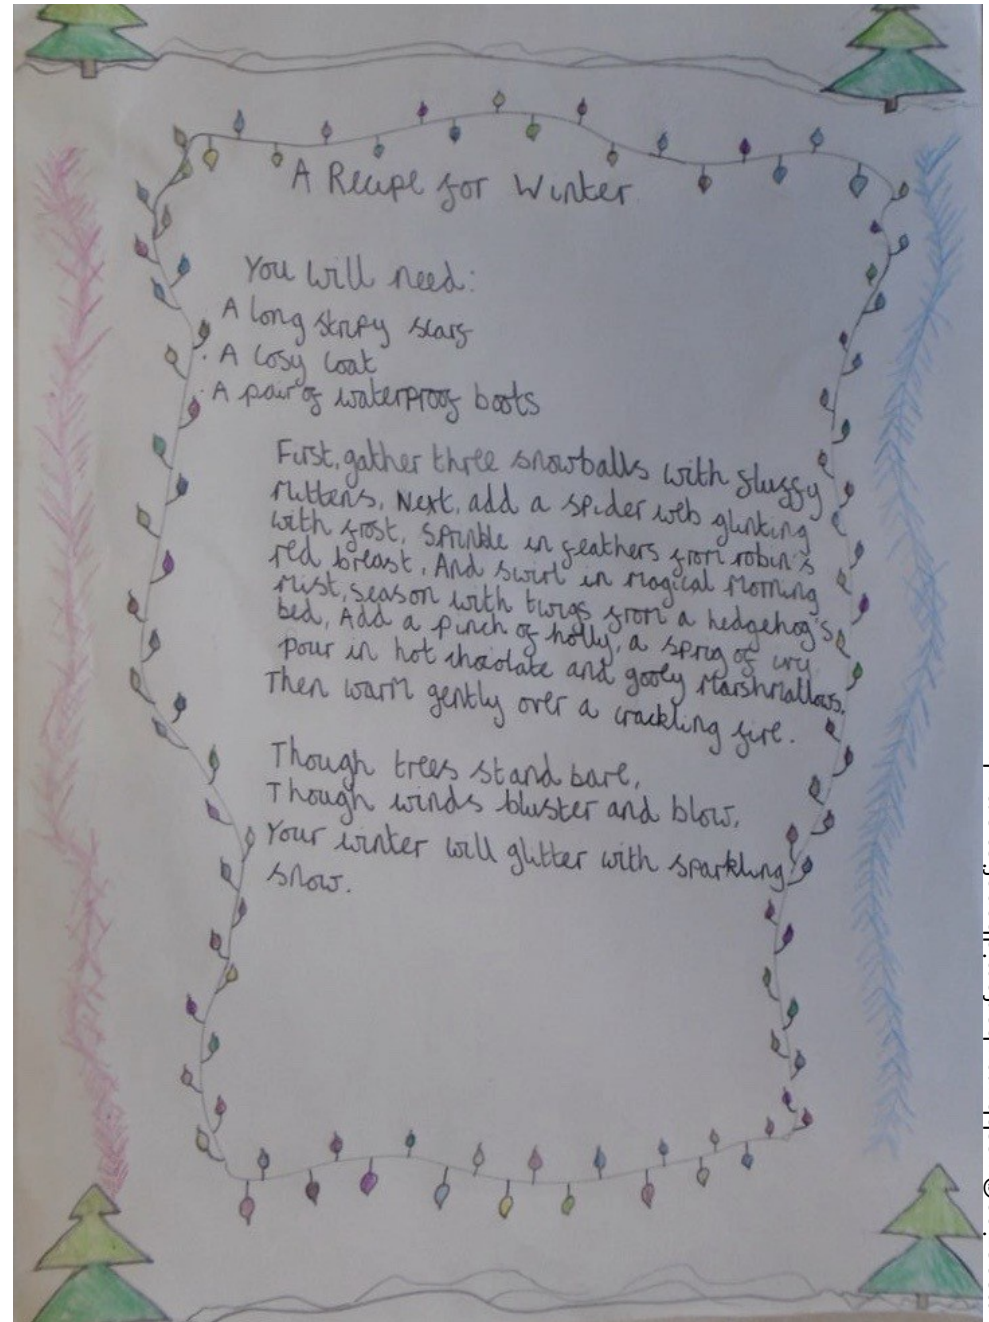 A Recipe for Winter
You will need:
A long stripy scarf
. A cosy coat
. A pair of waterproof boots
First, gather three snowballs with fluffy
mittens, Next, add a spider web glinting
with frost, Sprinkle in feathers from robin's
red breast, And swirl in magical morning
mist, season with twigs from a hedgehog's
bed, Add a pinch of holly, a sprig of ivy
pour in hot chocolate and gooey marshmallows.
Then warm gently over a crackling fire.
Though trees stand bare,
Though winds bluster and blow,
Your winter will glitter with sparkling
snow.